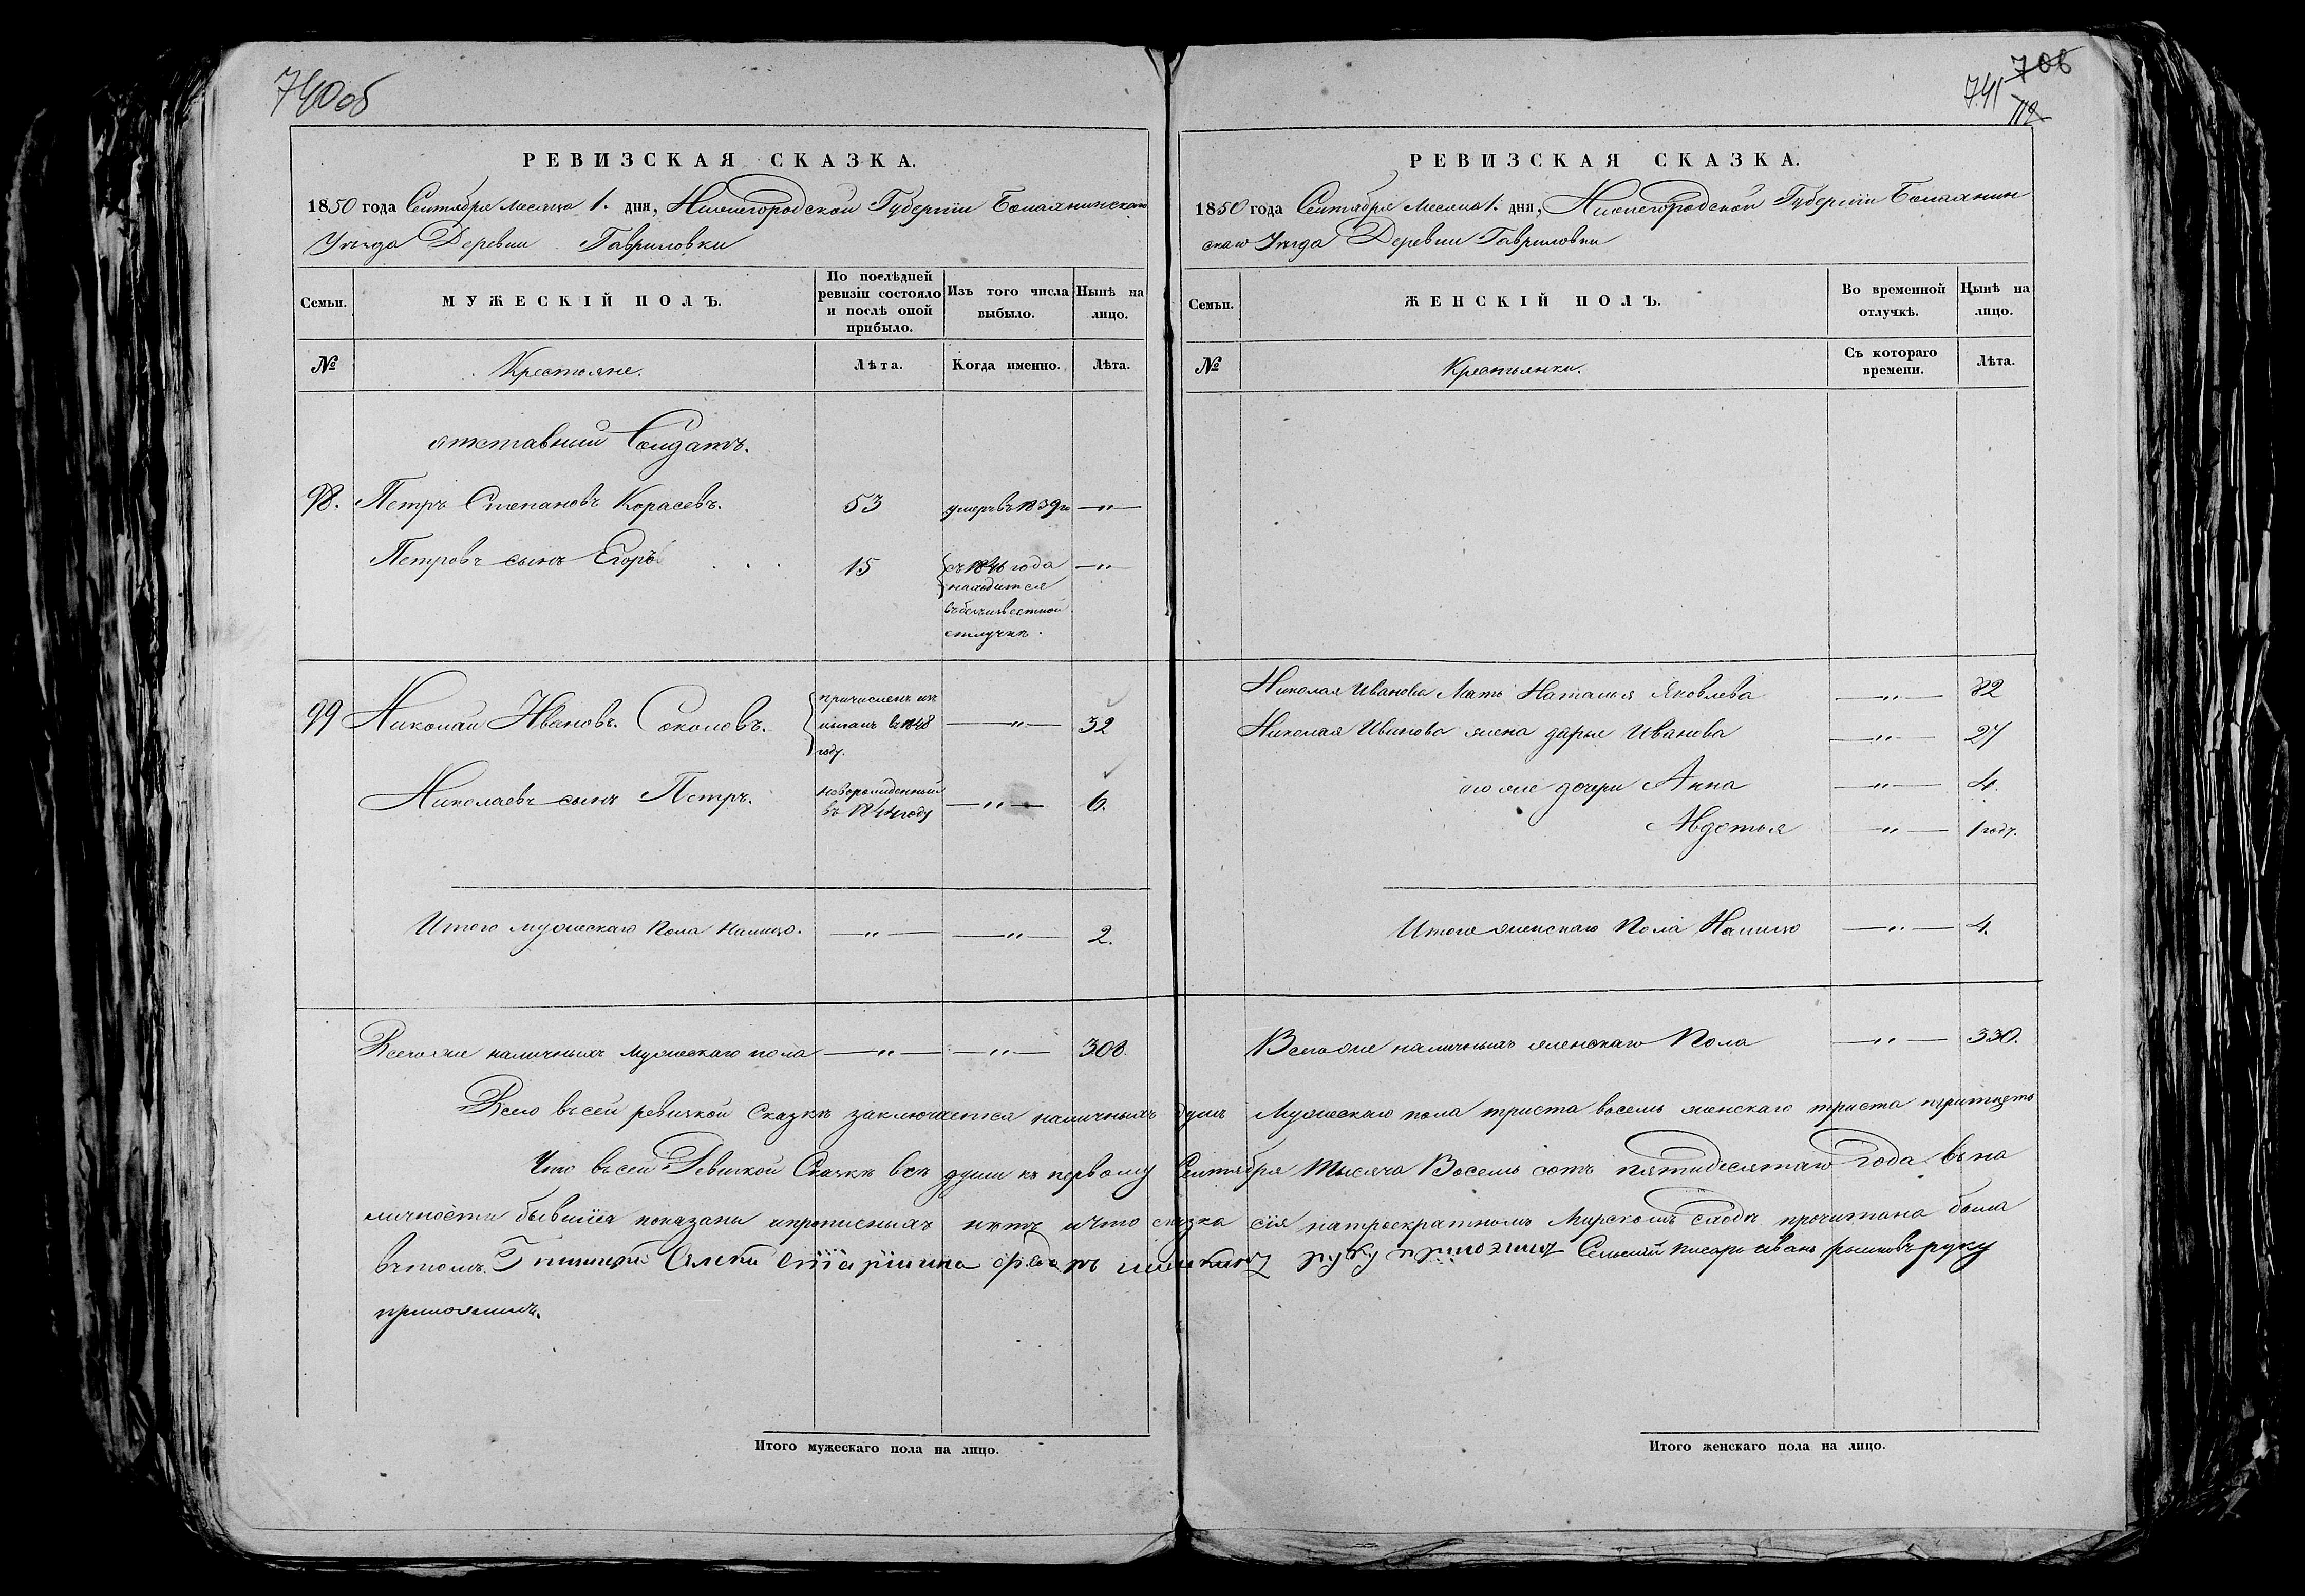 740об
РЕВИЗСКАЯ СКАЗКА.
1850 года Сентября месяца 1. дня, Нижегородской Губернии Балахнинскаго
Уезда Деревни Гавриловки
Семьи.
МУЖЕСКІЙ ПОЛЪ.
По послѣдней ревизіи состояло и послѣ оной прибыло.
Изъ того числа выбыло.
Нынѣ на лицо.
№
Крестьяне.
Лѣта.
Когда именно.
Лѣта.
отставный Солдатъ.
98. Петръ Степановъ Карасевъ. 53 умеръ въ 1839 —"—
Петровъ сынъ Егоръ 15 съ 1846 года —"—
находится
въ безъизвестной
отлучкѣ.
99 Николай Ивановъ. Соколовъ. причисленъ въ 1848 году. —"— 32
Николаевъ сынъ Петръ. новорожденный въ 1844 году —"— 6.
Итого мужескаго пола налицо. —"— —"— 2.
Всего же наличныхъ мужескаго пола —"— —"— 308.
741 706
112
РЕВИЗСКАЯ СКАЗКА.
1850 года Сентября месяца 1. дня, Нижегородской Губерніи Балахнин
скаго Уезда Деревни Гавриловки
Семьи.
ЖЕНСКІЙ ПОЛЪ.
Во временной отлучкѣ.
Нынѣ на лицо.
№
Крестьянки.
Съ котораго времени.
Лѣта.
Николая Иванова Мать Наталья Яковлева —"— 72
Николая Иванова жена дарья Иванова —"— 27
его же дочери Анна —"— 4.
Авдотья —"— 1 годъ.
Итого женскаго Пола Налицо —"— 4.
Всего же наличныхъ женскаго Пола —"— 330.
Всего въ сей ревизкой Сказкѣ заключается наличныхъ душъ Мужескаго пола триста восемь женскаго триста тритцеть
Что въ сей Ревизкой Сказкѣ всѣ души къ первому Сентября тысяча Восемь сотъ пятидесятаго Года въ на
личности бывшіея показаны и прописныхъ нетъ и что сказка сія натроекратномъ Мирскомъ сходѣ прочитана была
въ томъ. старшина руку приложилъ Сельский писарь иванъ руку
приложилъ.
Итого мужескаго пола на лицо.
Итого женскаго пола на лицо.